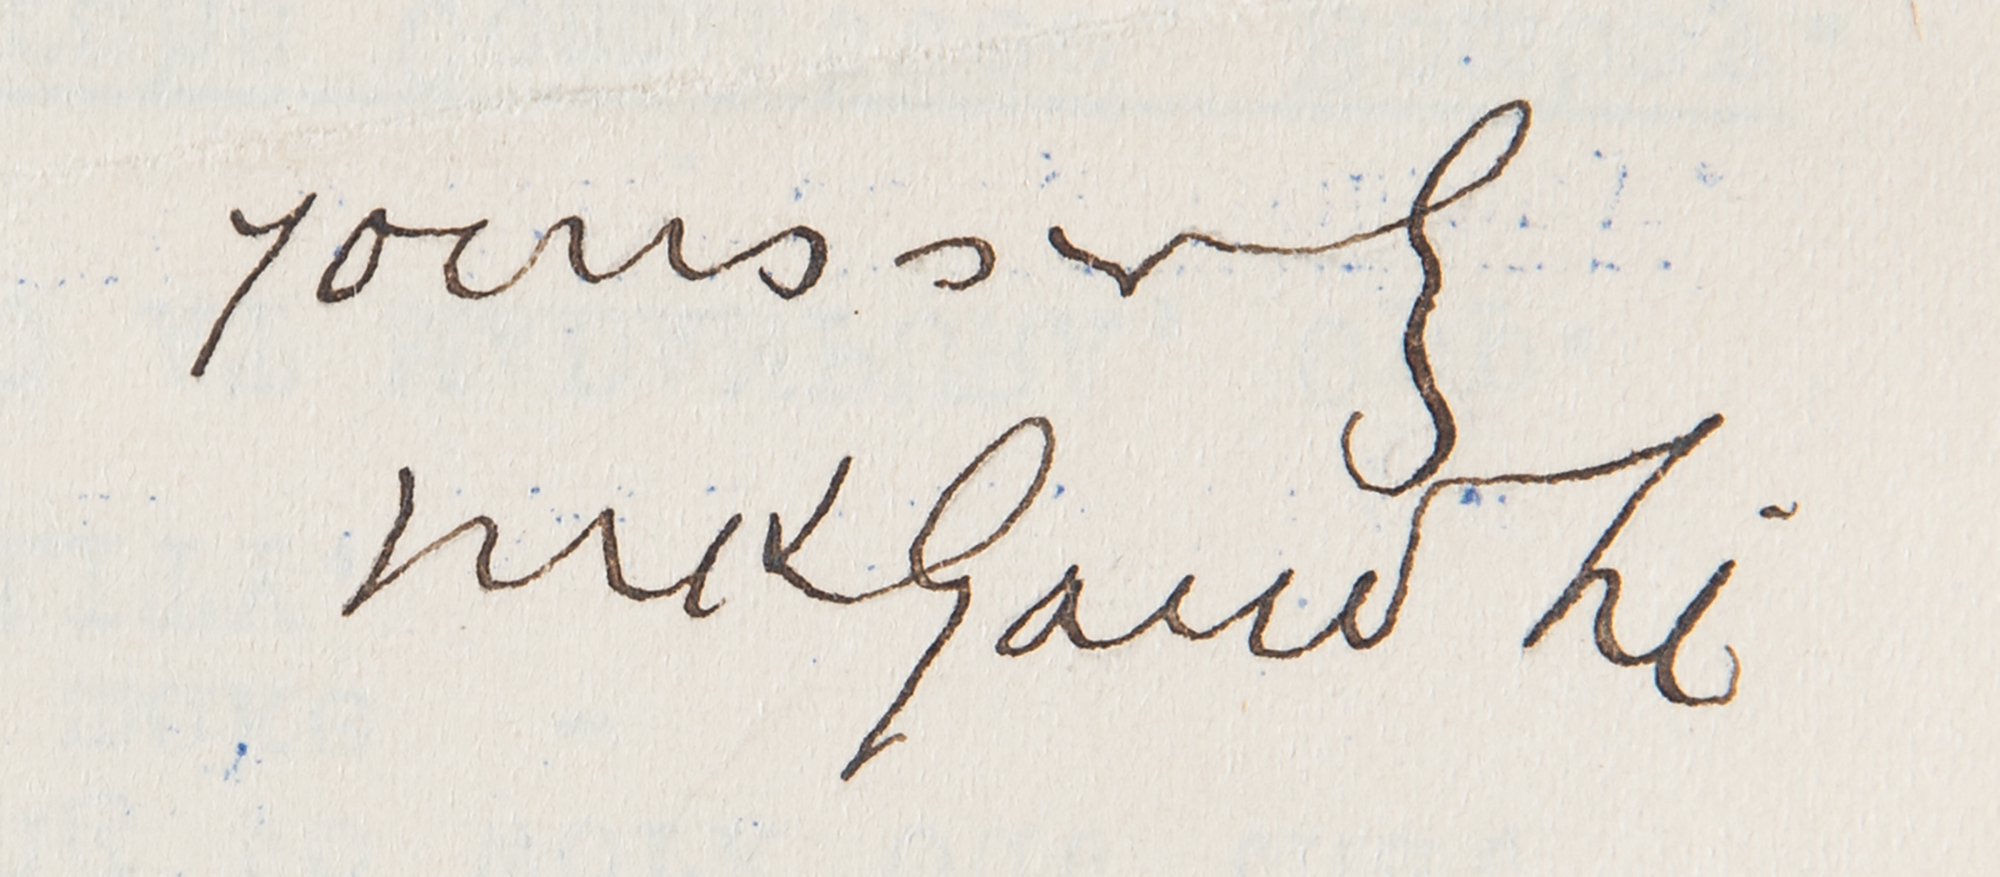 yours sinly
MKGandhi